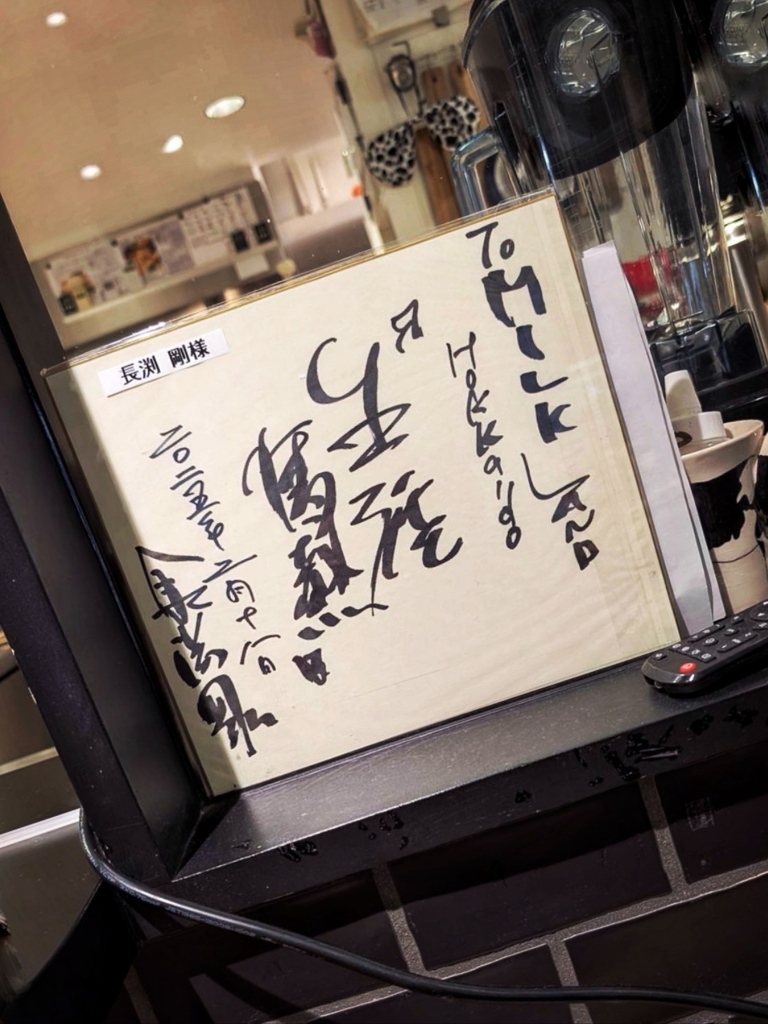 長渕 剛様
To MILK LAND
HOKKAiDO
生涯
二〇二五年二月十八日
長渕剛